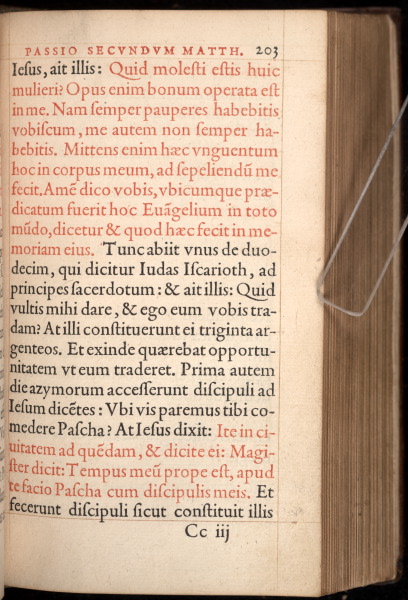 PASSIO SECVNDVM MATTH. 203
Iesus, ait illis: Quid molesti estis huic
mulieri? Opus enim bonum operata est
in me. Nam semper pauperes habebitis
vobiscum, me autem non semper ha-
bebitis. Mittens enim hæc vnguentum
hoc in corpus meum, ad sepeliendū me
fecit. Amē dico vobis, vbicumque præ-
dicatum fuerit hoc Euāgelium in toto
mūdo, dicetur & quod hæc fecit in me-
moriam eius. Tunc abiit vnus de duo-
decim, qui dicitur Iudas Iscarioth, ad
principes sacerdotum: & ait illis: Quid
vultis mihi dare, & ego eum vobis tra-
dam? At illi constituerunt ei triginta ar-
genteos. Et exinde quærebat opportu-
nitatem vt eum traderet. Prima autem
die azymorum accesserunt discipuli ad
Iesum dicētes: Vbi vis paremus tibi co-
medere Pascha? At Iesus dixit: Ite in ci-
uitatem ad quēdam, & dicite ei: Magi-
ster dicit: Tempus meū prope est, apud
te facio Pascha cum discipulis meis. Et
fecerunt discipuli sicut constituit illis
Cc iij